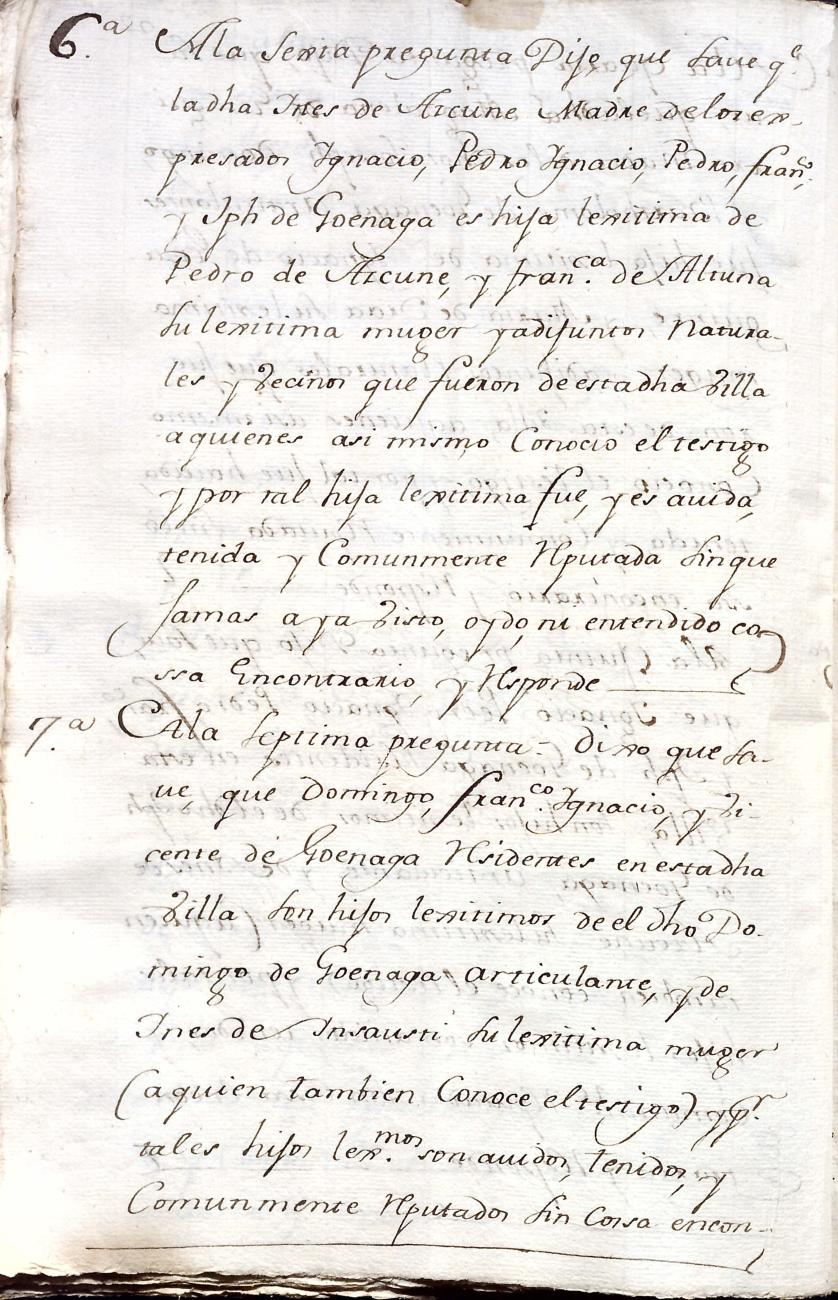 6.ª A la Sexta pregunta Dijo que save q.e
la dha Ines de Arcune Madre de los ex-
presados Ignacio, Pedro Ignacio, Pedro, fran.co,
y Jph de Goenaga es hija lexitima de
Pedro de Arcune, y fran.ca de Altuna
su lexitima muger ya difuntos Natura-
les y Vecinos que fueron de esta dha Villa
a quienes asi mismo Conocio el testigo
y por tal hija lexitima fue, y es avida,
tenida y Comunmente Reputada sin que
Jamas aya Visto, oydo, ni entendido co-
ssa Encontrario, y Responde
7.ª A la septima pregunta = Dixo que sa-
ve, que Domingo, fran.co Ignacio, y Vi-
cente de Goenaga Residentes en esta dha
Villa son hijos lexitimos de el dho Do-
mingo de Goenaga articulante, y de
Ines de Insausti su lexitima muger
(a quien tambien Conoce el testigo) y p.r
tales hijos lex.mos son avidos, tenidos, y
Comunmente Reputados sin Cossa encon-